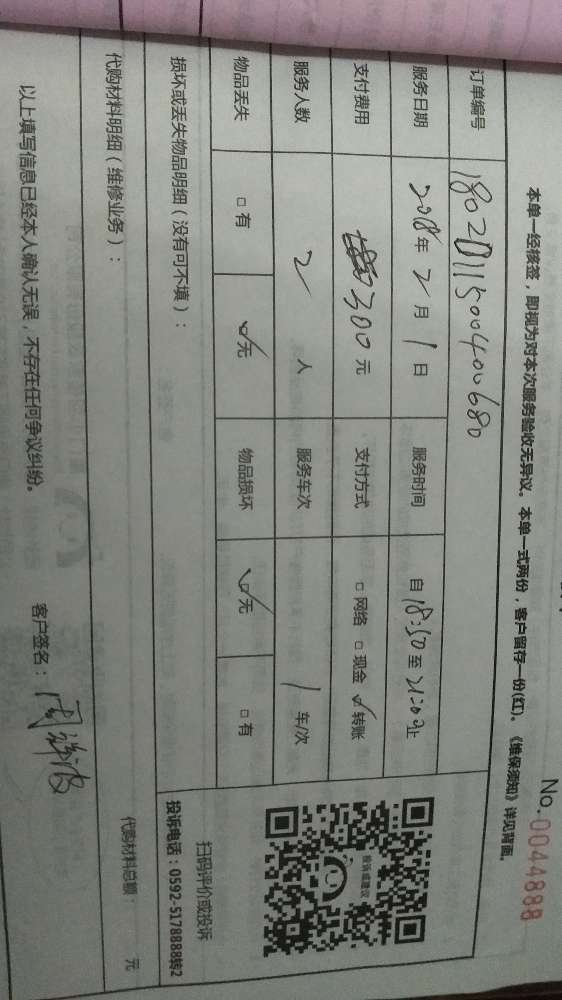 No.0044888
本单一经核签，即视为对本次服务验收无异议。本单一式两份，客户留存一份(红)。《维保须知》详见背面。
订单编号
服务日期 2018年 2月 1日 服务时间 自18:50至21:20止
支付费用 300元 支付方式 □网络 □现金 ☑转账
服务人数 2人 服务车次 1车/次
物品丢失 □有 ☑无 物品损坏 ☑无 □有
损坏或丢失物品明细（没有可不填）：
投诉或建议
扫码评价或投诉
投诉电话：0592-5178888转2
代购材料明细（维修业务）： 代购材料总额： 元
以上填写信息已经本人确认无误，不存在任何争议纠纷。 客户签名：